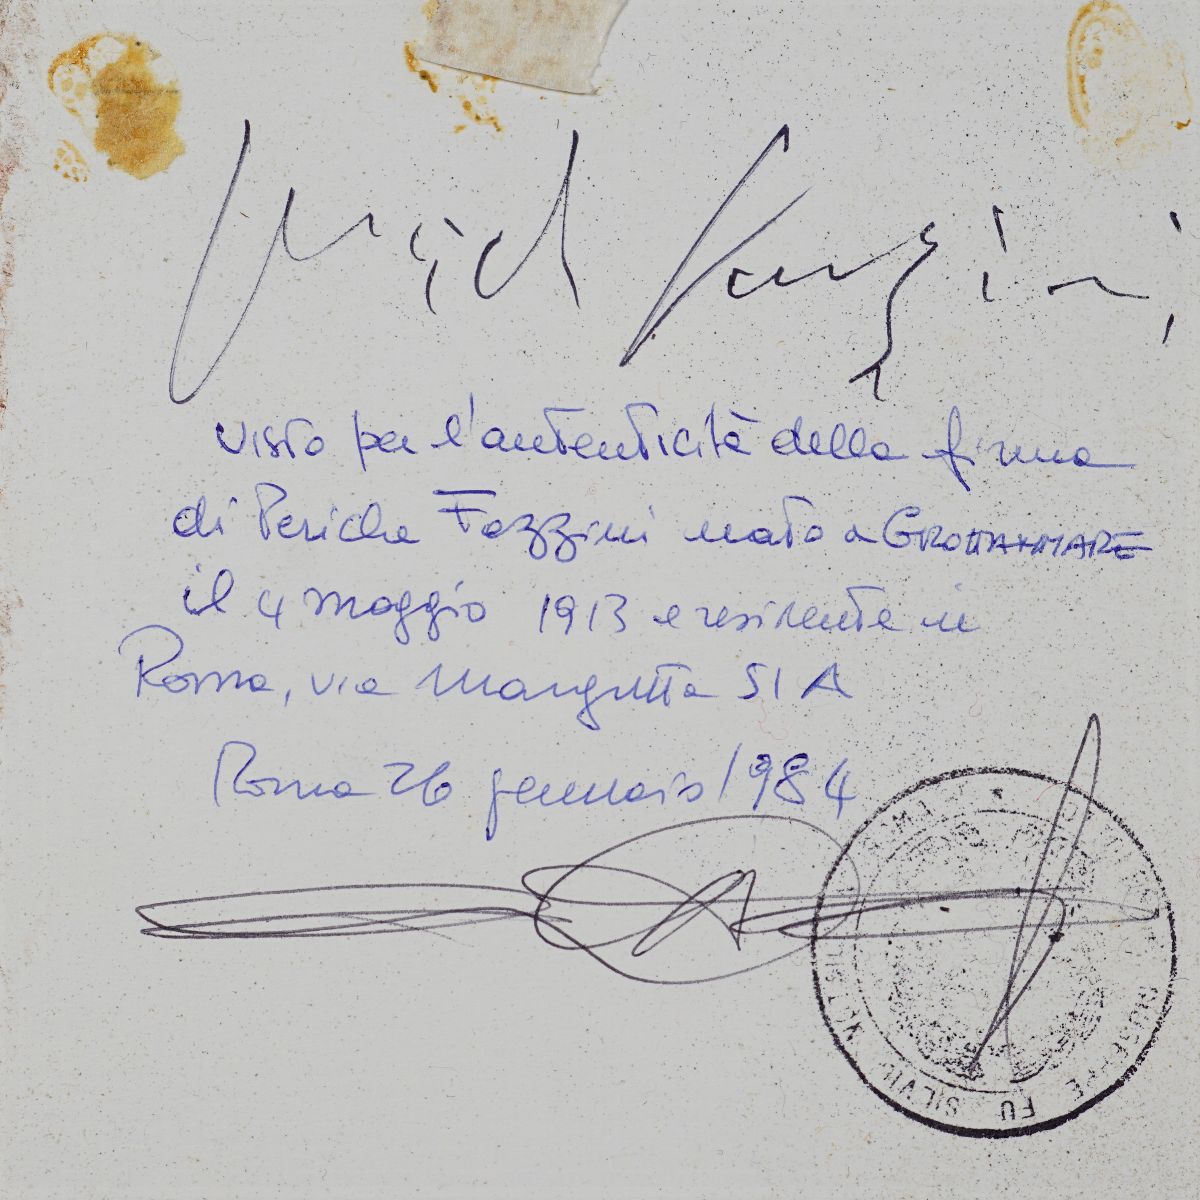 Visto per l'autenticità della firma
di Pericle Fazzini nato a GROTTAMMARE
il 4 maggio 1913 e residente in
Roma, via Margutta 51 A
Roma 26 gennaio 1984
GIUSEPPE FU SILVIO